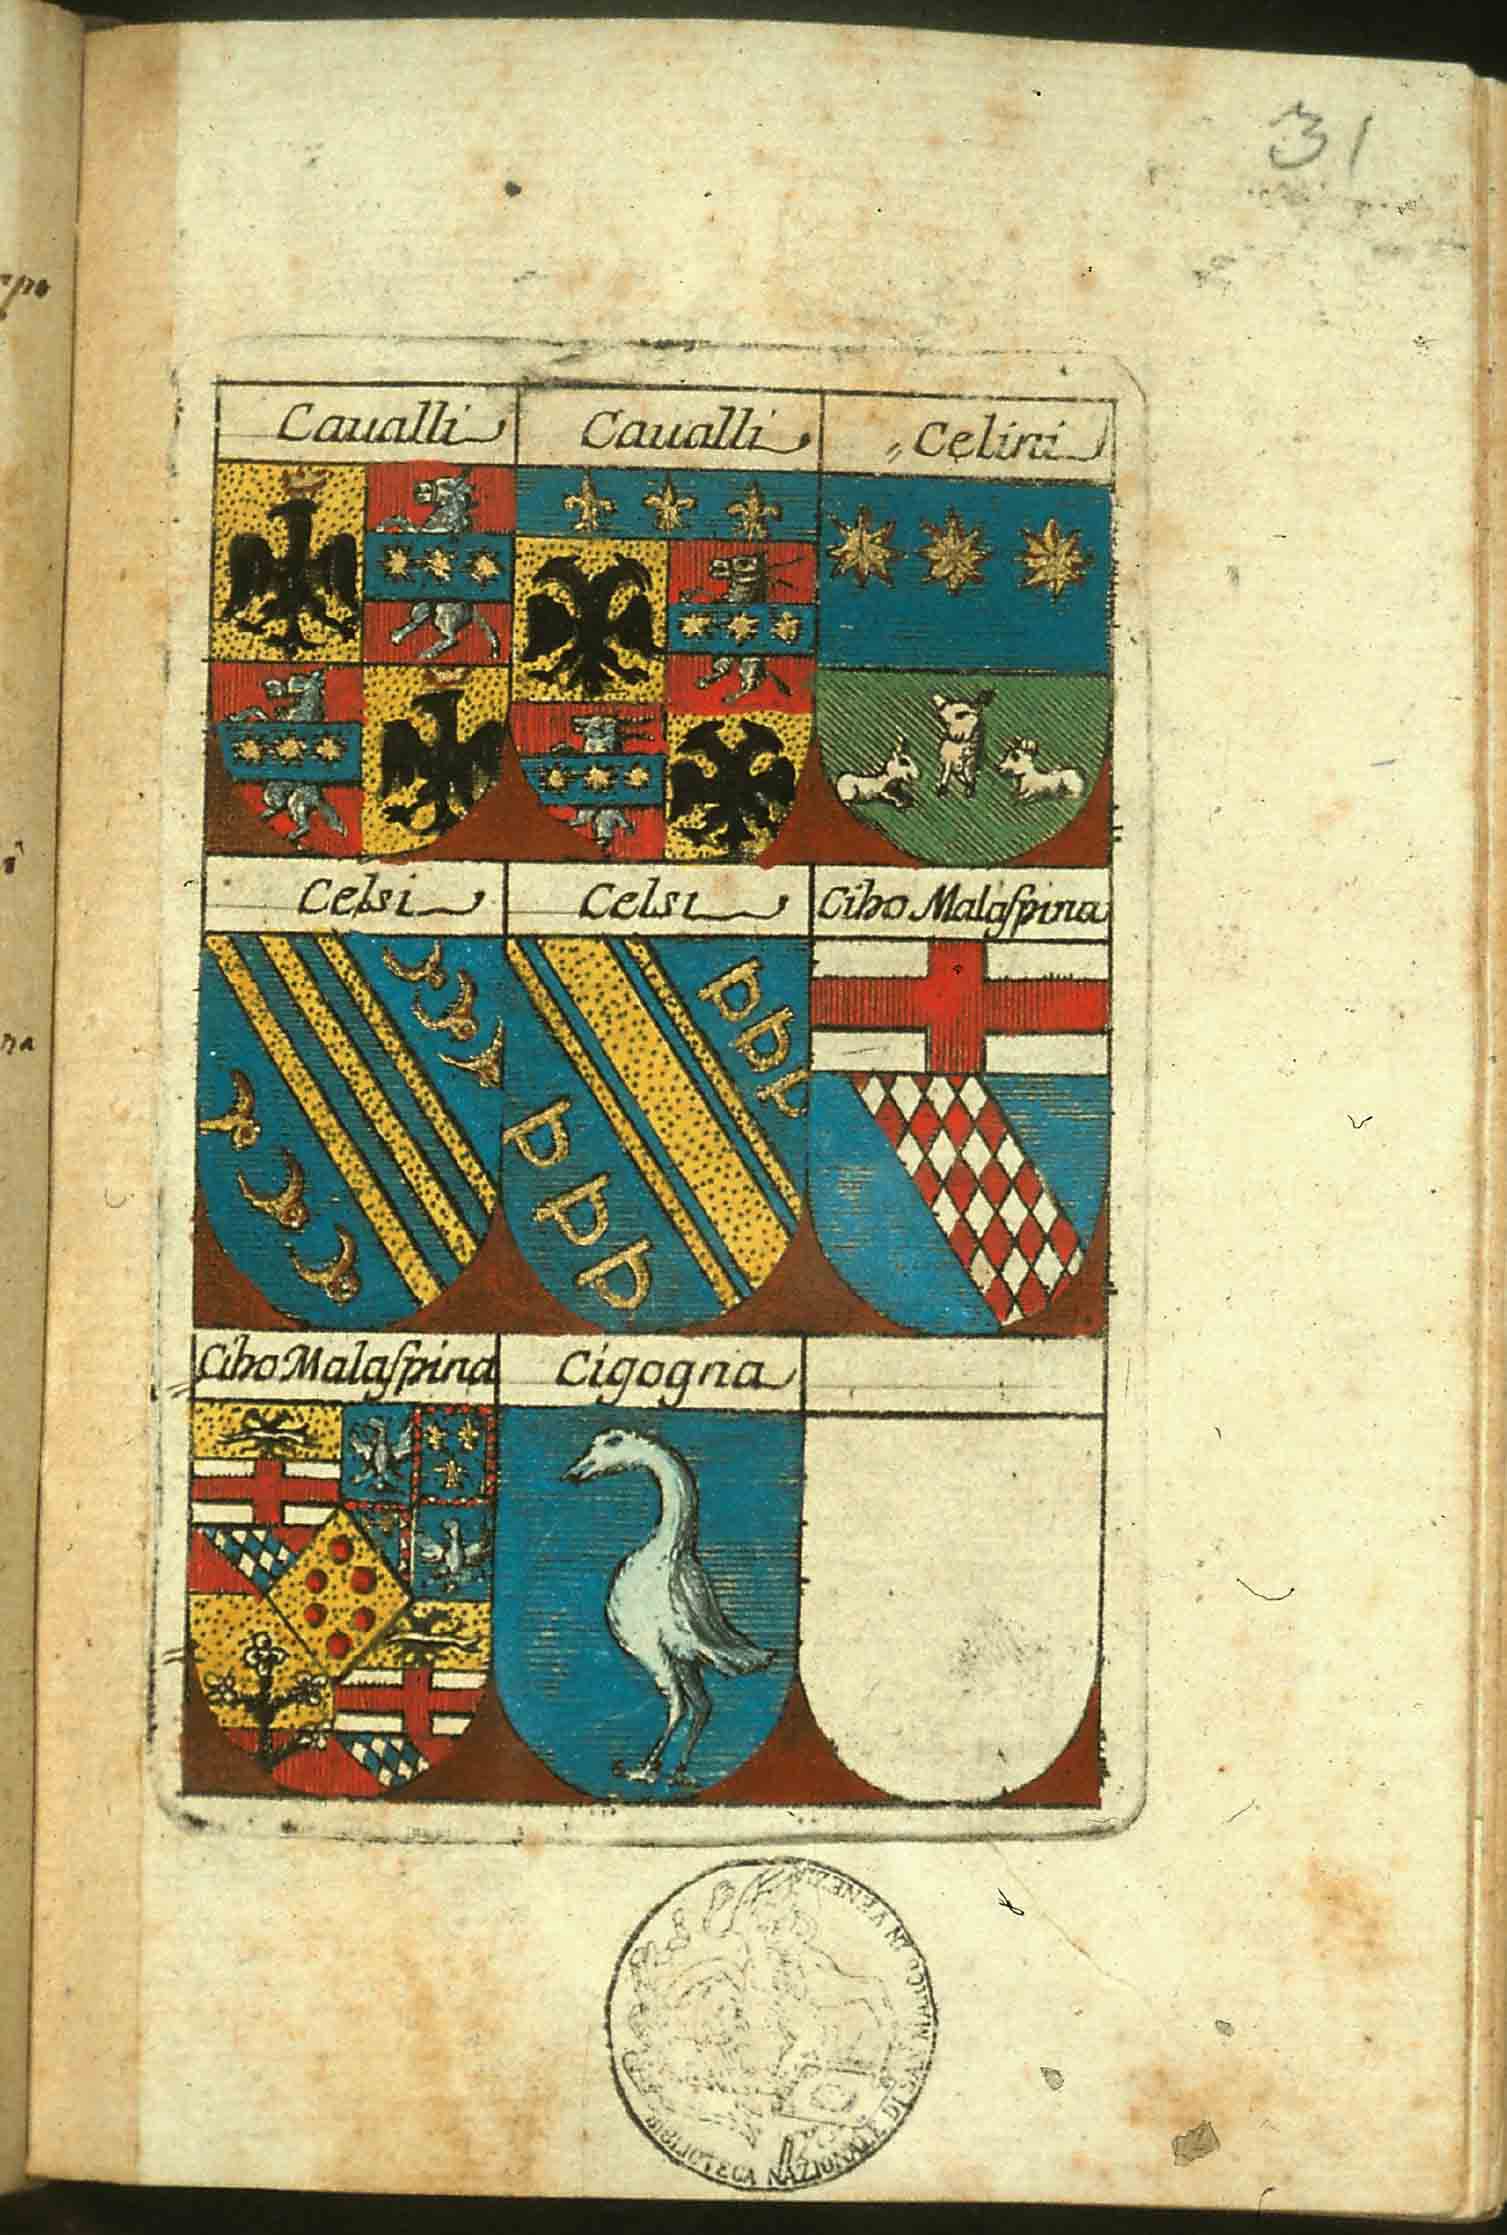 31
Caualli
Caualli
Celini
Celsi
Celsi
Cibo Malaſpina
Cibo Malaſpina
Cigogna
BIBLIOTECA NAZIONALE DI SAN MARCO IN VENEZIA
na